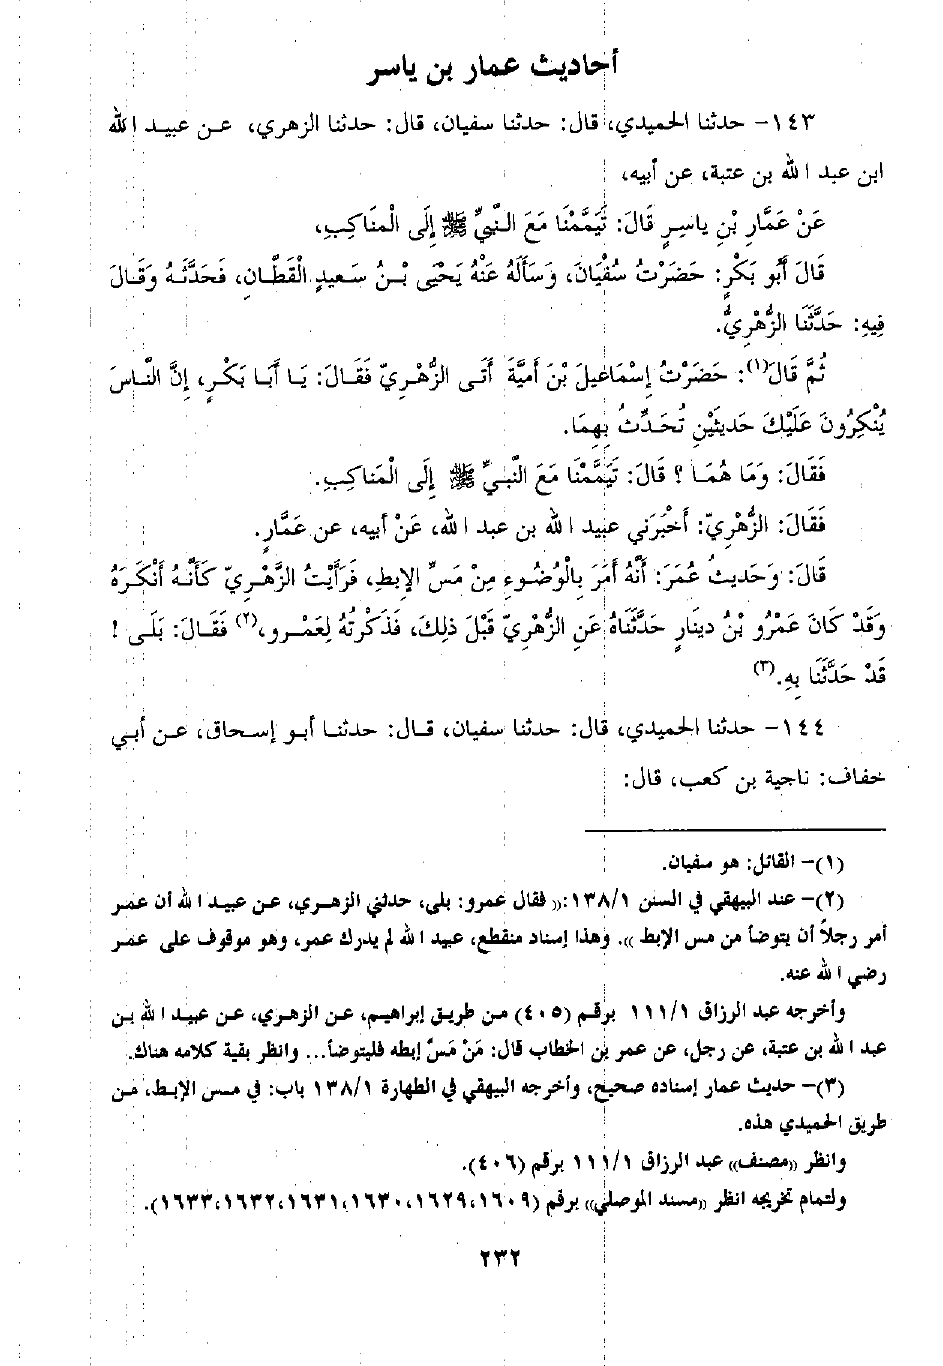 أحاديث عمار بن ياسر
١٤٣- حدثنا الحميدي، قال: حدثنا سفيان، قال: حدثنا الزهري، عن عبيد الله
ابن عبد الله بن عتبة، عن أبيه،
عَنْ عَمَّارِ بْنِ ياسِرٍ قَالَ: تَيَمَّمْنَا مَعَ النَّبِيِّ ﷺ إِلَى الْمَنَاكِبِ،
قَالَ أَبُو بَكْرٍ: حَضَرْتُ سُفْيَانَ، وَسَأَلَهُ عَنْهُ يَحْيَى بْنُ سَعيدٍ الْقَطَّانِ، فَحَدَّثَهُ وَقَالَ
فِيهِ: حَدَّثَنَا الزُّهْرِيُّ.
ثُمَّ قَالَ(١): حَضَرْتُ إِسْمَاعيلَ بْنَ أمَيَّةَ أَتَى الزُّهْرِيّ فَقَالَ: يَا أَبَا بَكْرٍ، إِنَّ النَّاسَ
يُنْكِرُونَ عَلَيْكَ حَديثَيْنِ تُحَدِّثُ بِهِمَا.
فَقَالَ: وَمَا هُمَا ؟ قَالَ: تَيَمَّمْنَا مَعَ النَّبِيِّ ﷺ إِلَى الْمَنَاكِبِ.
فَقَالَ: الزُّهْرِيّ: أَخْبَرَني عبيد الله بن عبد الله، عَنْ أبيه، عن عَمَّارٍ.
قَالَ: وَحَديثُ عُمَرَ: أَنَّهُ أَمَرَ بِالْوُضُوءِ مِنْ مَسِّ الإبطِ، فَرَأَيْتُ الزَّهْرِيّ كَأَنَّهُ أَنْكَرَهُ
وَقَدْ كَانَ عَمْرُو بْنُ دينَارٍ حَدَّثَنَاهُ عَنِ الزُّهْرِيّ قَبْلَ ذلِكَ، فَذَكَرْتُهُ لِعَمْرو،(٢) فَقَالَ: بَلَى !
قَدْ حَدَّثَنَا بِهِ.(٣)
١٤٤- حدثنا الحميدي، قال: حدثنا سفيان، قال: حدثنا أبو إسحاق، عن أبي
خفاف: ناجية بن كعب، قال:
(١)- القائل: هو سفيان.
(٢)- عند البيهقي في السنن ١٣٨/١:«فقال عمرو: بلى، حدثني الزهري، عن عبيد الله أن عمر
أمر رجلاً أن يتوضأ من مس الإبط ». وهذا إسناد منقطع، عبيد الله لم يدرك عمر، وهو موقوف على عمر
رضي الله عنه.
وأخرجه عبد الرزاق ١١١/١ برقم (٤٠٥) من طريق إبراهيم، عن الزهري، عن عبيد الله بن
عبد الله بن عتبة، عن رجل، عن عمر بن الخطاب قال: مَنْ مَسَّ إبطه فليتوضأ... وانظر بقية كلامه هناك.
(٣)- حديث عمار إسناده صحيح، وأخرجه البيهقي في الطهارة ١٣٨/١ باب: في مس الإبط، من
طريق الحميدي هذه.
وانظر «مصنف» عبد الرزاق ١١١/١ برقم (٤٠٦).
ولتمام تخريجه انظر «مسند الموصلي» برقم (١٦٠٩، ١٦٢٩، ١٦٣٠، ١٦٣١، ١٦٣٢، ١٦٣٣).
٢٣٢